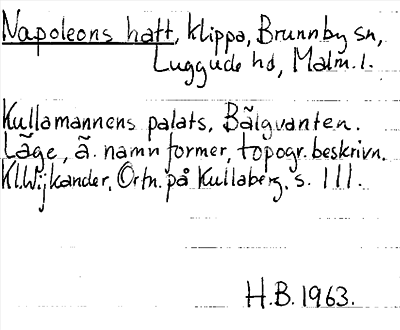 Napoleons hatt, klippa, Brunnby sn,
Luggude hd, Malm. l.
Kullamannens palats, Bälgvanten.
Läge, ä. namnformer, topogr. beskrivn.
Kl. Wijkander, Ortn. på Kullaberg, s. 111.
H.B. 1963.